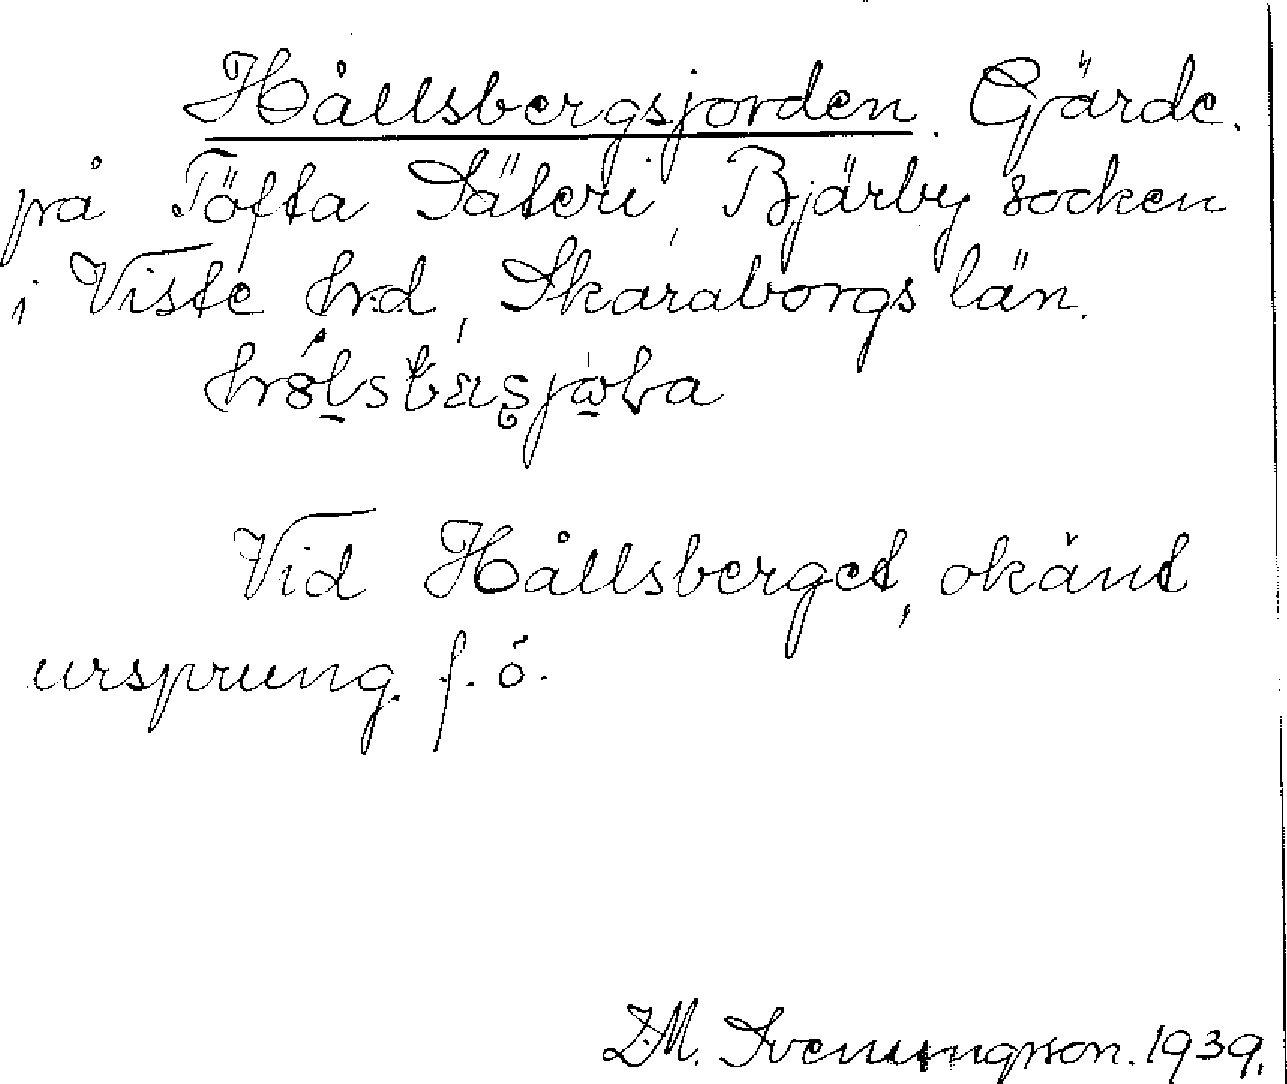 Hållsbergsjorden. Gärde.
på Töfta Säteri, Bjärby socken
i Viste hrd, Skaraborgs län.
Vid Hållsberget, okänt
ursprung f. ö.
Z.M. Svenungsson. 1939.